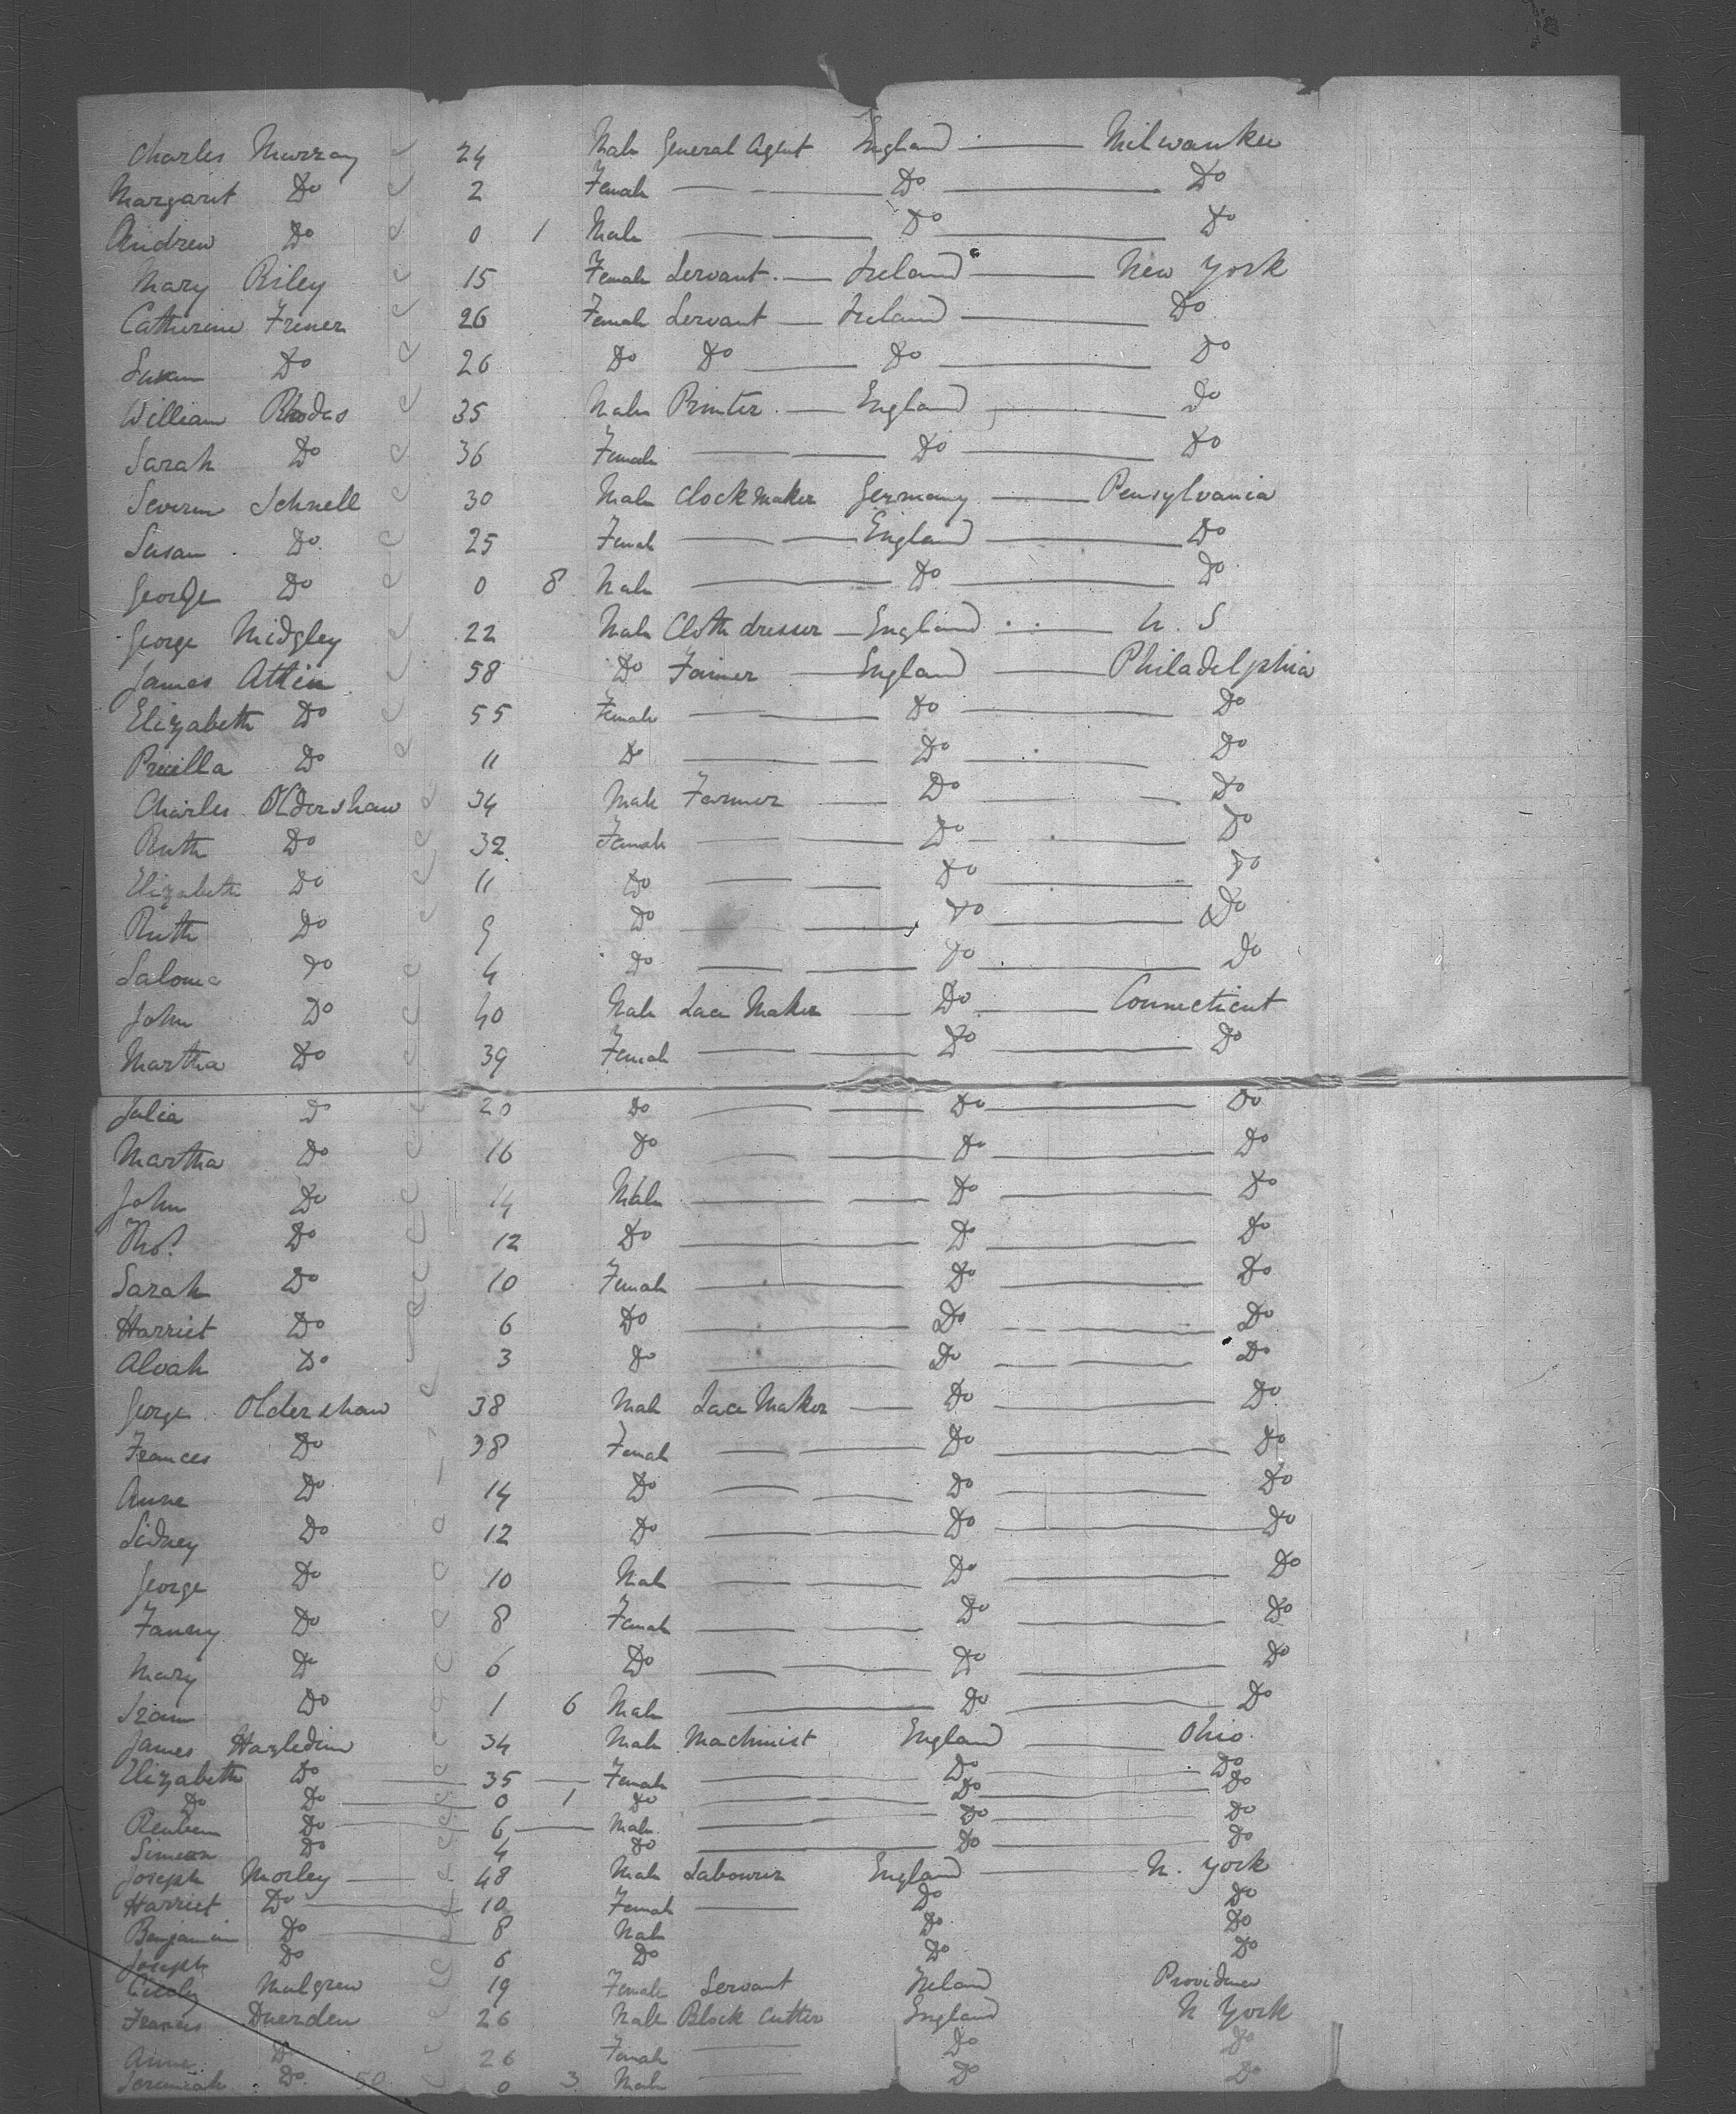 Charles Murray 24 Male General Agent England Milwaukee
Margarit Do 2 Female Do Do
Andrew Do 0 1 Male Do Do
Mary Riley 15 Female Servant Ireland New York
Catherine Frener 26 Female Servant Ireland Do
Susan Do 26 Do Do Do Do
William Rhodes 35 Male Printer England Do
Sarah Do 36 Female Do Do
Severin Schnell 30 Male Clockmaker Germany Pensylvania
Susan Do 25 Female England Do
George Do 0 8 Male Do Do
George Midgley 22 Male Cloth dresser England U. S
James Attin 58 Do Farmer England Philadelphia
Elizabeth Do 55 Female Do Do
Precilla Do 11 Do Do Do
Charles Oldershaw 34 Male Farmer Do Do
Ruth Do 32 Female Do Do
Elizabeth Do 11 Do Do Do
Ruth Do 9 Do Do Do
Saloma Do 4 Do Do Do
John Do 40 Male Lace Maker Do Connecticut
Martha Do 39 Female Do Do
Julia D 20 Do Do Do
Martha Do 16 Do Do Do
John Do 14 Male Do Do
Thos. Do 12 Do Do Do
Sarah Do 10 Female Do Do
Harriet Do 6 Do Do Do
Alvah Do 3 Do Do Do
George Oldershaw 38 Male Lace Maker Do Do
Frances Do 38 Female Do Do
Anne Do 14 Do Do Do
Sidney Do 12 Do Do Do
George Do 10 Male Do Do
Fanny Do 8 Female Do Do
Mary Do 6 Do Do Do
Do 1 6 Male Do Do
James Hazledine 34 Male Machinist England Ohio
Elizabeth Do 35 Female Do Do
Do Do 0 1 Do Do Do
Reuben Do 6 Male Do Do
Simeon Do 4 Do Do Do
Joseph Morley 48 Male Labourer England N. York
Harriet Do 10 Female Do Do
Benjamin Do 8 Male Do Do
Joseph Do 6 Do Do Do
Cicely Mulgrew 19 Female Servant Ireland Providence
Francis Duerden 26 Male Block Cutter England N York
Anne Do 26 Female Do Do
Jeremiah Do 50 0 3 Male Do Do